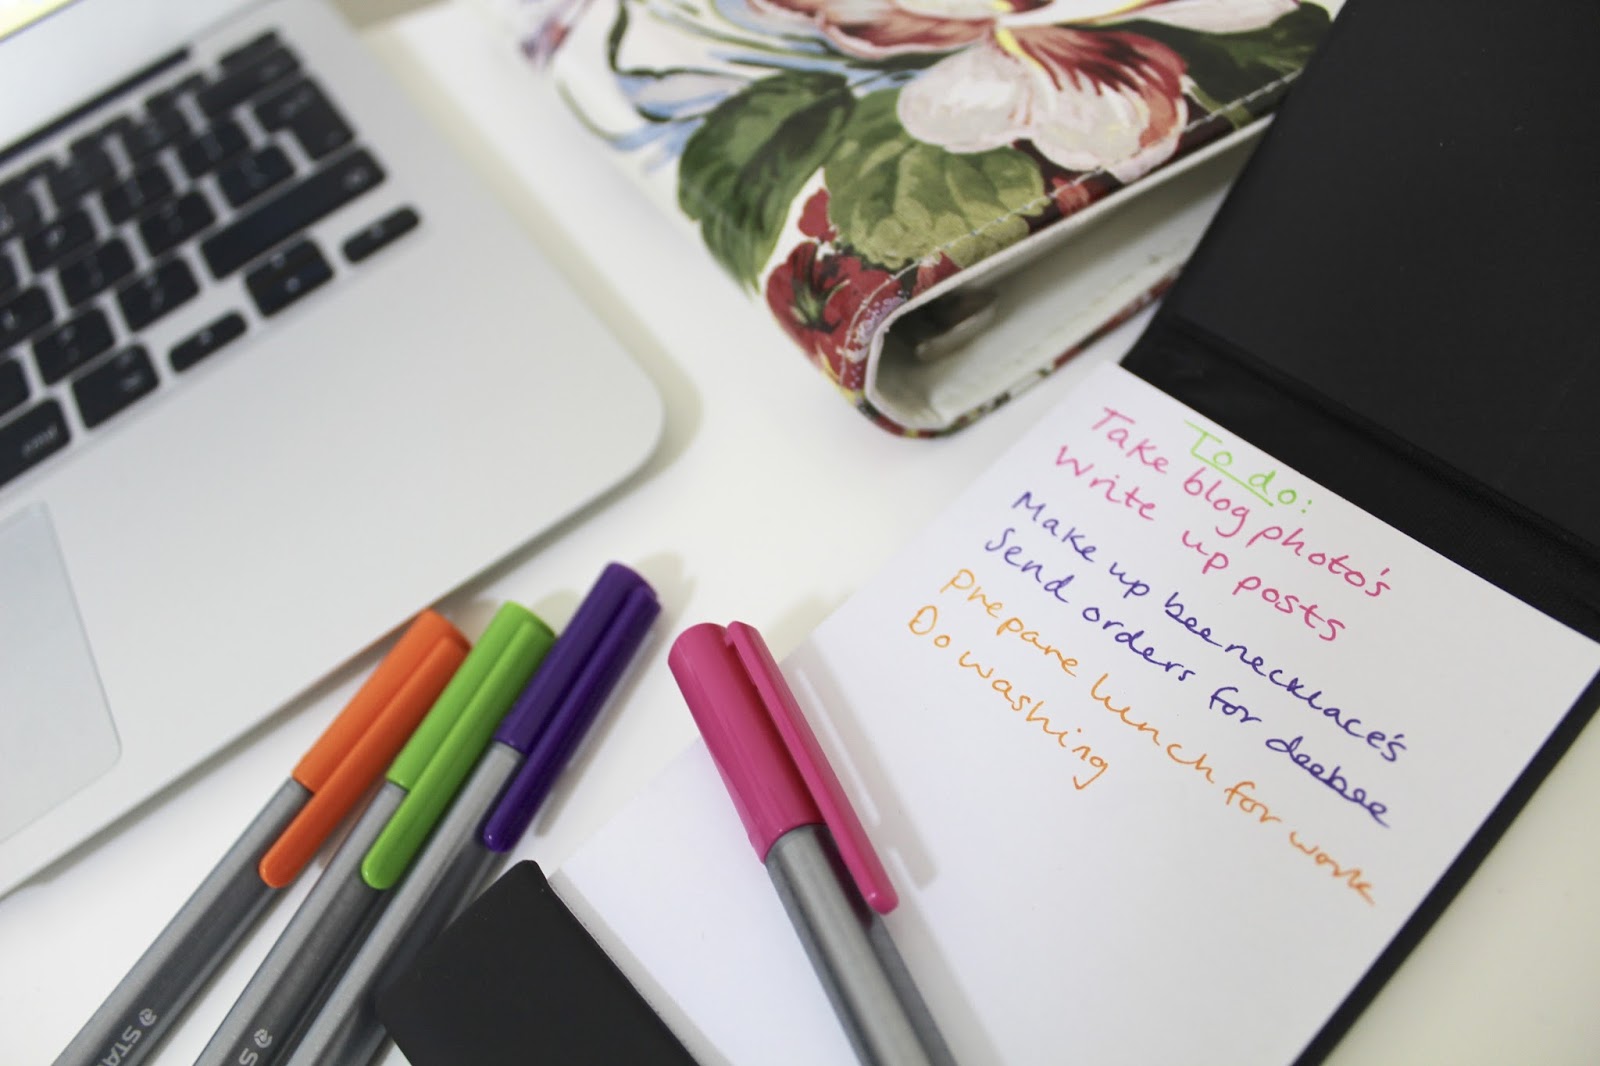 To do:
Take blog photo's
Write up posts
Make up bee necklace's
Send orders for deebee
Prepare lunch for work
Do washing